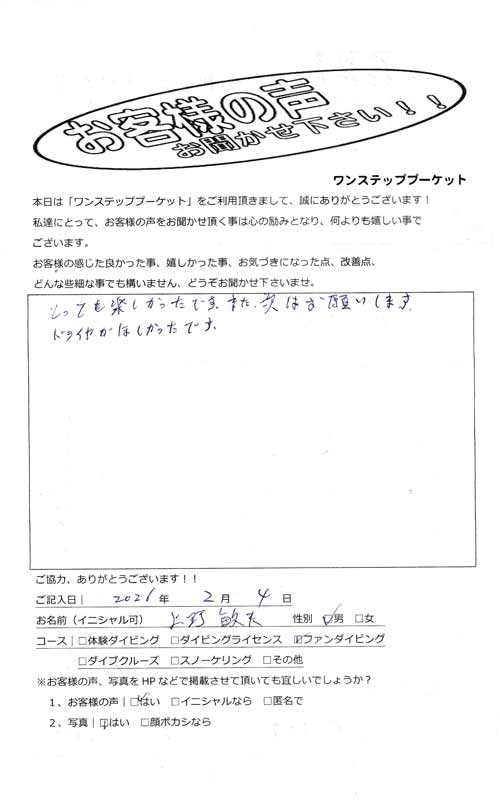 お客様の声
お聞かせ下さい！！
ワンステッププーケット
本日は「ワンステッププーケット」をご利用頂きまして、誠にありがとうございます！
私達にとって、お客様の声をお聞かせ頂く事は心の励みとなり、何よりも嬉しい事で
ございます。
お客様の感じた良かった事、嬉しかった事、お気づきになった点、改善点、
どんな些細な事でも構いません、どうぞお聞かせ下さいませ。
とっても楽しかったです。また、次はお願いします。
ドライヤがほしかったです。
ご協力、ありがとうございます！！
ご記入日｜ 2026 年 2 月 4 日
お名前（イニシャル可） 上野 敏夫 性別 ☑男 □女
コース｜□体験ダイビング □ダイビングライセンス ☑ファンダイビング
□ダイブクルーズ □スノーケリング □その他
※お客様の声、写真を HP などで掲載させて頂いても宜しいでしょうか？
１、お客様の声｜☑はい □イニシャルなら □匿名で
２、写真｜☑はい □顔ボカシなら